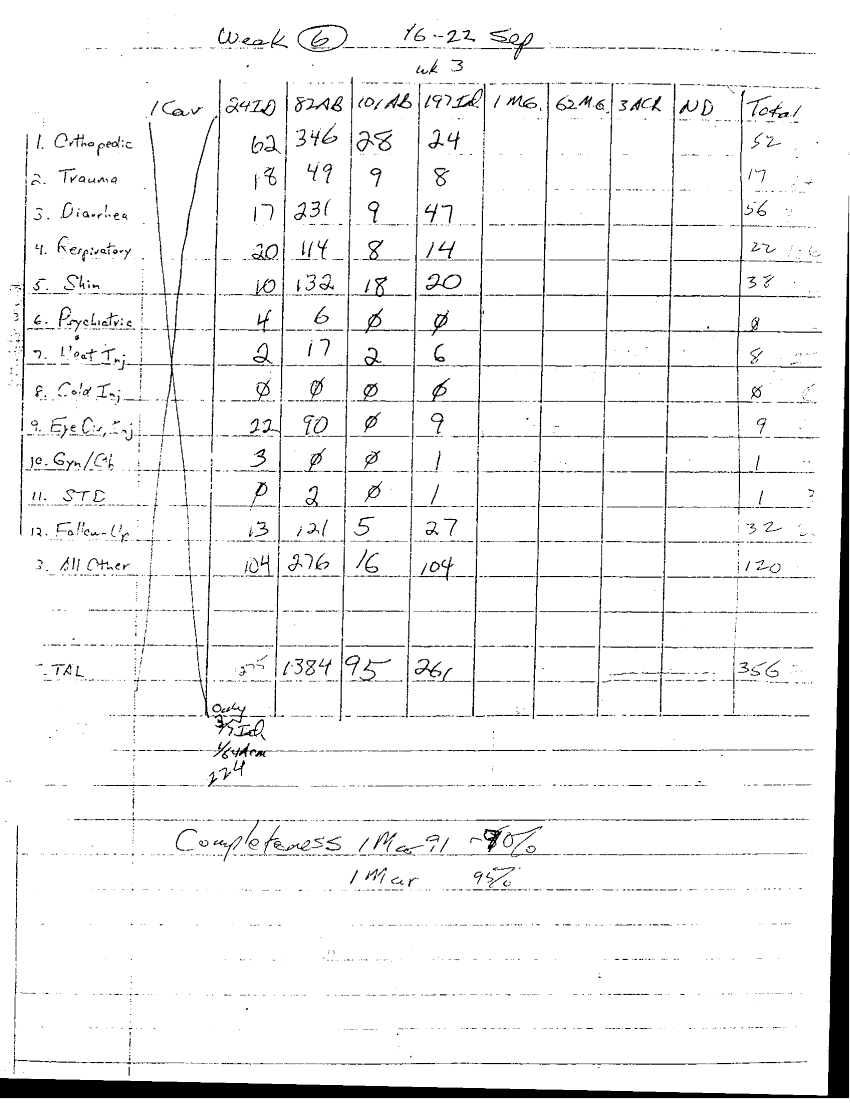 Week 6 16-22 Sep
wk 3
1 Cav 24ID 82AB 101AB 197Id. 1 MG. 62 M.G. 3ACR ND Total
1. Orthopedic 62 346 28 24 52
2. Trauma 18 49 9 8 17
3. Diarrhea 17 231 9 47 56
4. Respiratory 20 114 8 14 22
5. Skin 10 132 18 20 38
6. Psychiatric 4 6 Ø Ø Ø
7. Heat Inj 2 17 2 6 8
8. Cold Inj Ø Ø Ø Ø Ø
9. Eye Inj 22 90 Ø 9 9
10. Gyn/Ob 3 Ø Ø 1 1
11. STD Ø 2 Ø 1 1
12. Follow-Up 13 121 5 27 32
3. All Other 104 276 16 104 120
TAL 275 1384 95 261 356
Only
Id
1/64 Arm
224
Completeness 1 Mar 91 ~90%
1 Mar 95%